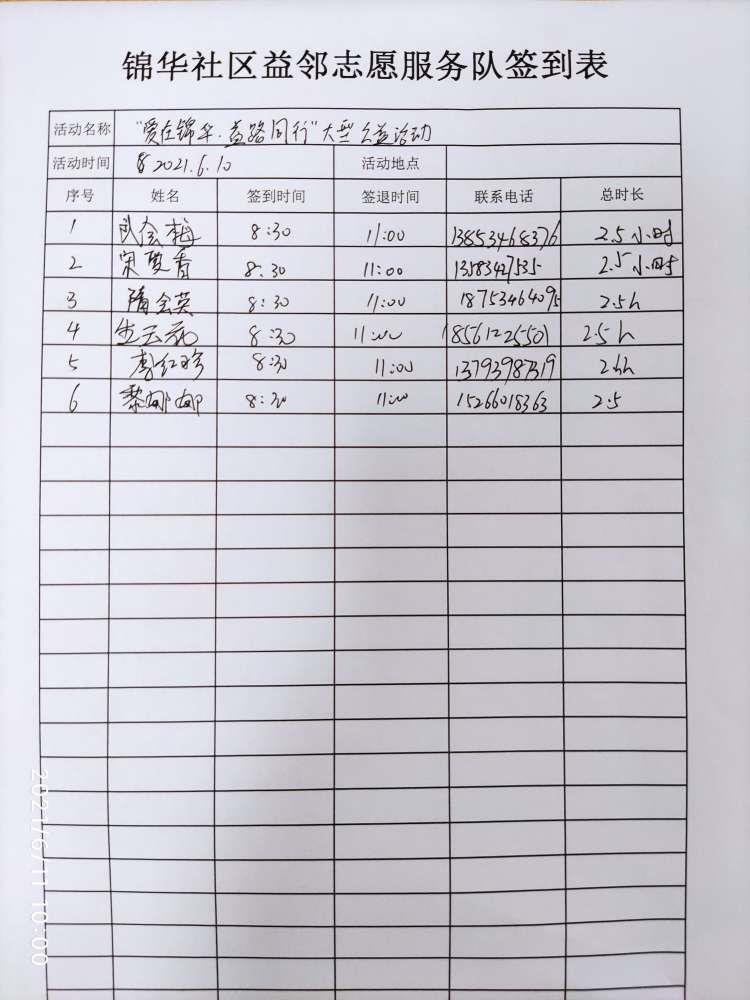 锦华社区益邻志愿服务队签到表
活动名称 "爱在锦华·益路同行"大型公益活动
活动时间 2021.6.10 活动地点
序号 姓名 签到时间 签退时间 联系电话 总时长
1 武会梅 8:30 11:00 13853468376 2.5小时
2 宋夏香 8:30 11:00 13583427535 2.5小时
3 隋会英 8:30 11:00 18753464095 2.5h
4 8:30 11:00 18561225501 2.5h
5 李红珍 8:30 11:00 13793987319
6 黎娜娜 8:30 11:00 15266018363 2.5
2021/6/11 10:00